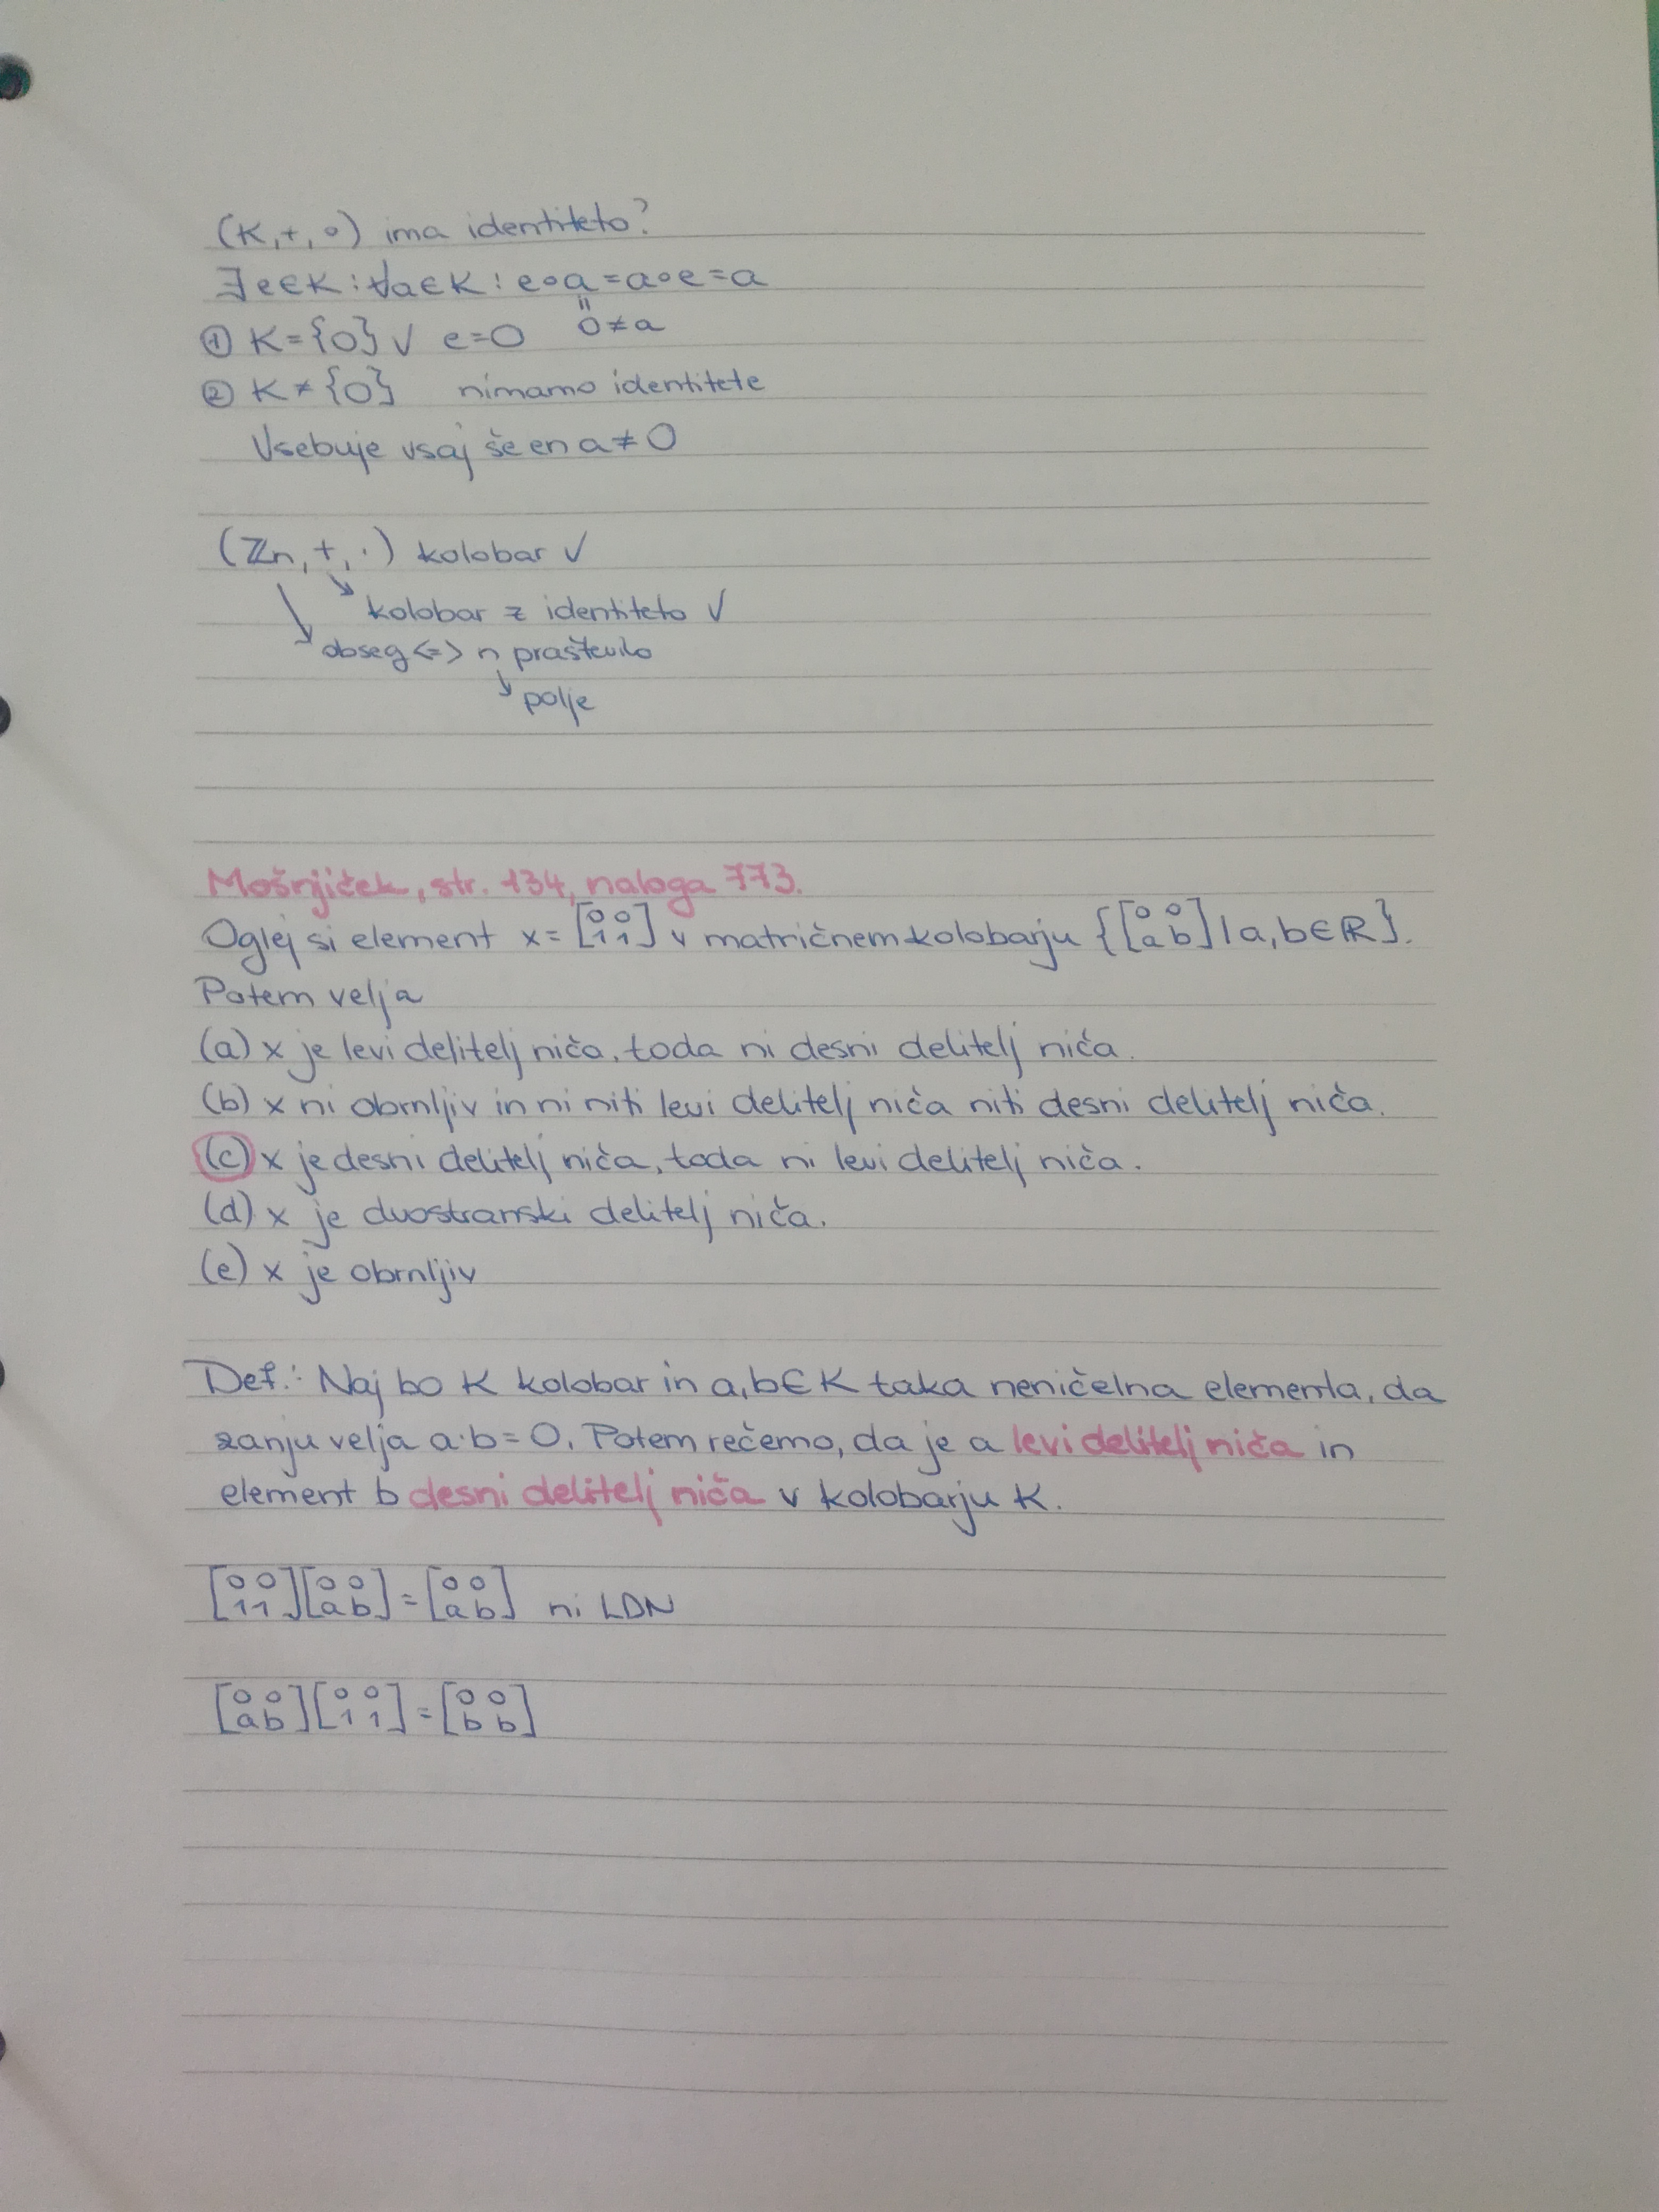 (K,+,∘) ima identiteto?
∃e∈K:∀a∈K: e∘a=a∘e=a
① K={0} ✓ e=0 " 0≠a
② K≠{0} nimamo identitete
Vsebuje vsaj še en a≠0
(Zn,+,·) kolobar ✓
↘ kolobar z identiteto ✓
↘ obseg <=> n praštevilo
↘ polje
Mošnjiček, str. 134, naloga 773.
Oglej si element x=[0 0; 1 1] v matričnem kolobarju {[0 0; a b] | a,b∈ℝ}.
Potem velja
(a) x je levi delitelj niča, toda ni desni delitelj niča.
(b) x ni obrnljiv in ni niti levi delitelj niča niti desni delitelj niča.
(c) x je desni delitelj niča, toda ni levi delitelj niča.
(d) x je dvostranski delitelj niča.
(e) x je obrnljiv
Def.: Naj bo K kolobar in a,b∈K taka neničelna elementa, da
zanju velja a·b=0. Potem rečemo, da je a levi delitelj niča in
element b desni delitelj niča v kolobarju K.
[0 0; 1 1][0 0; a b]=[0 0; a b] ni LDN
[0 0; a b][0 0; 1 1]=[0 0; b b]